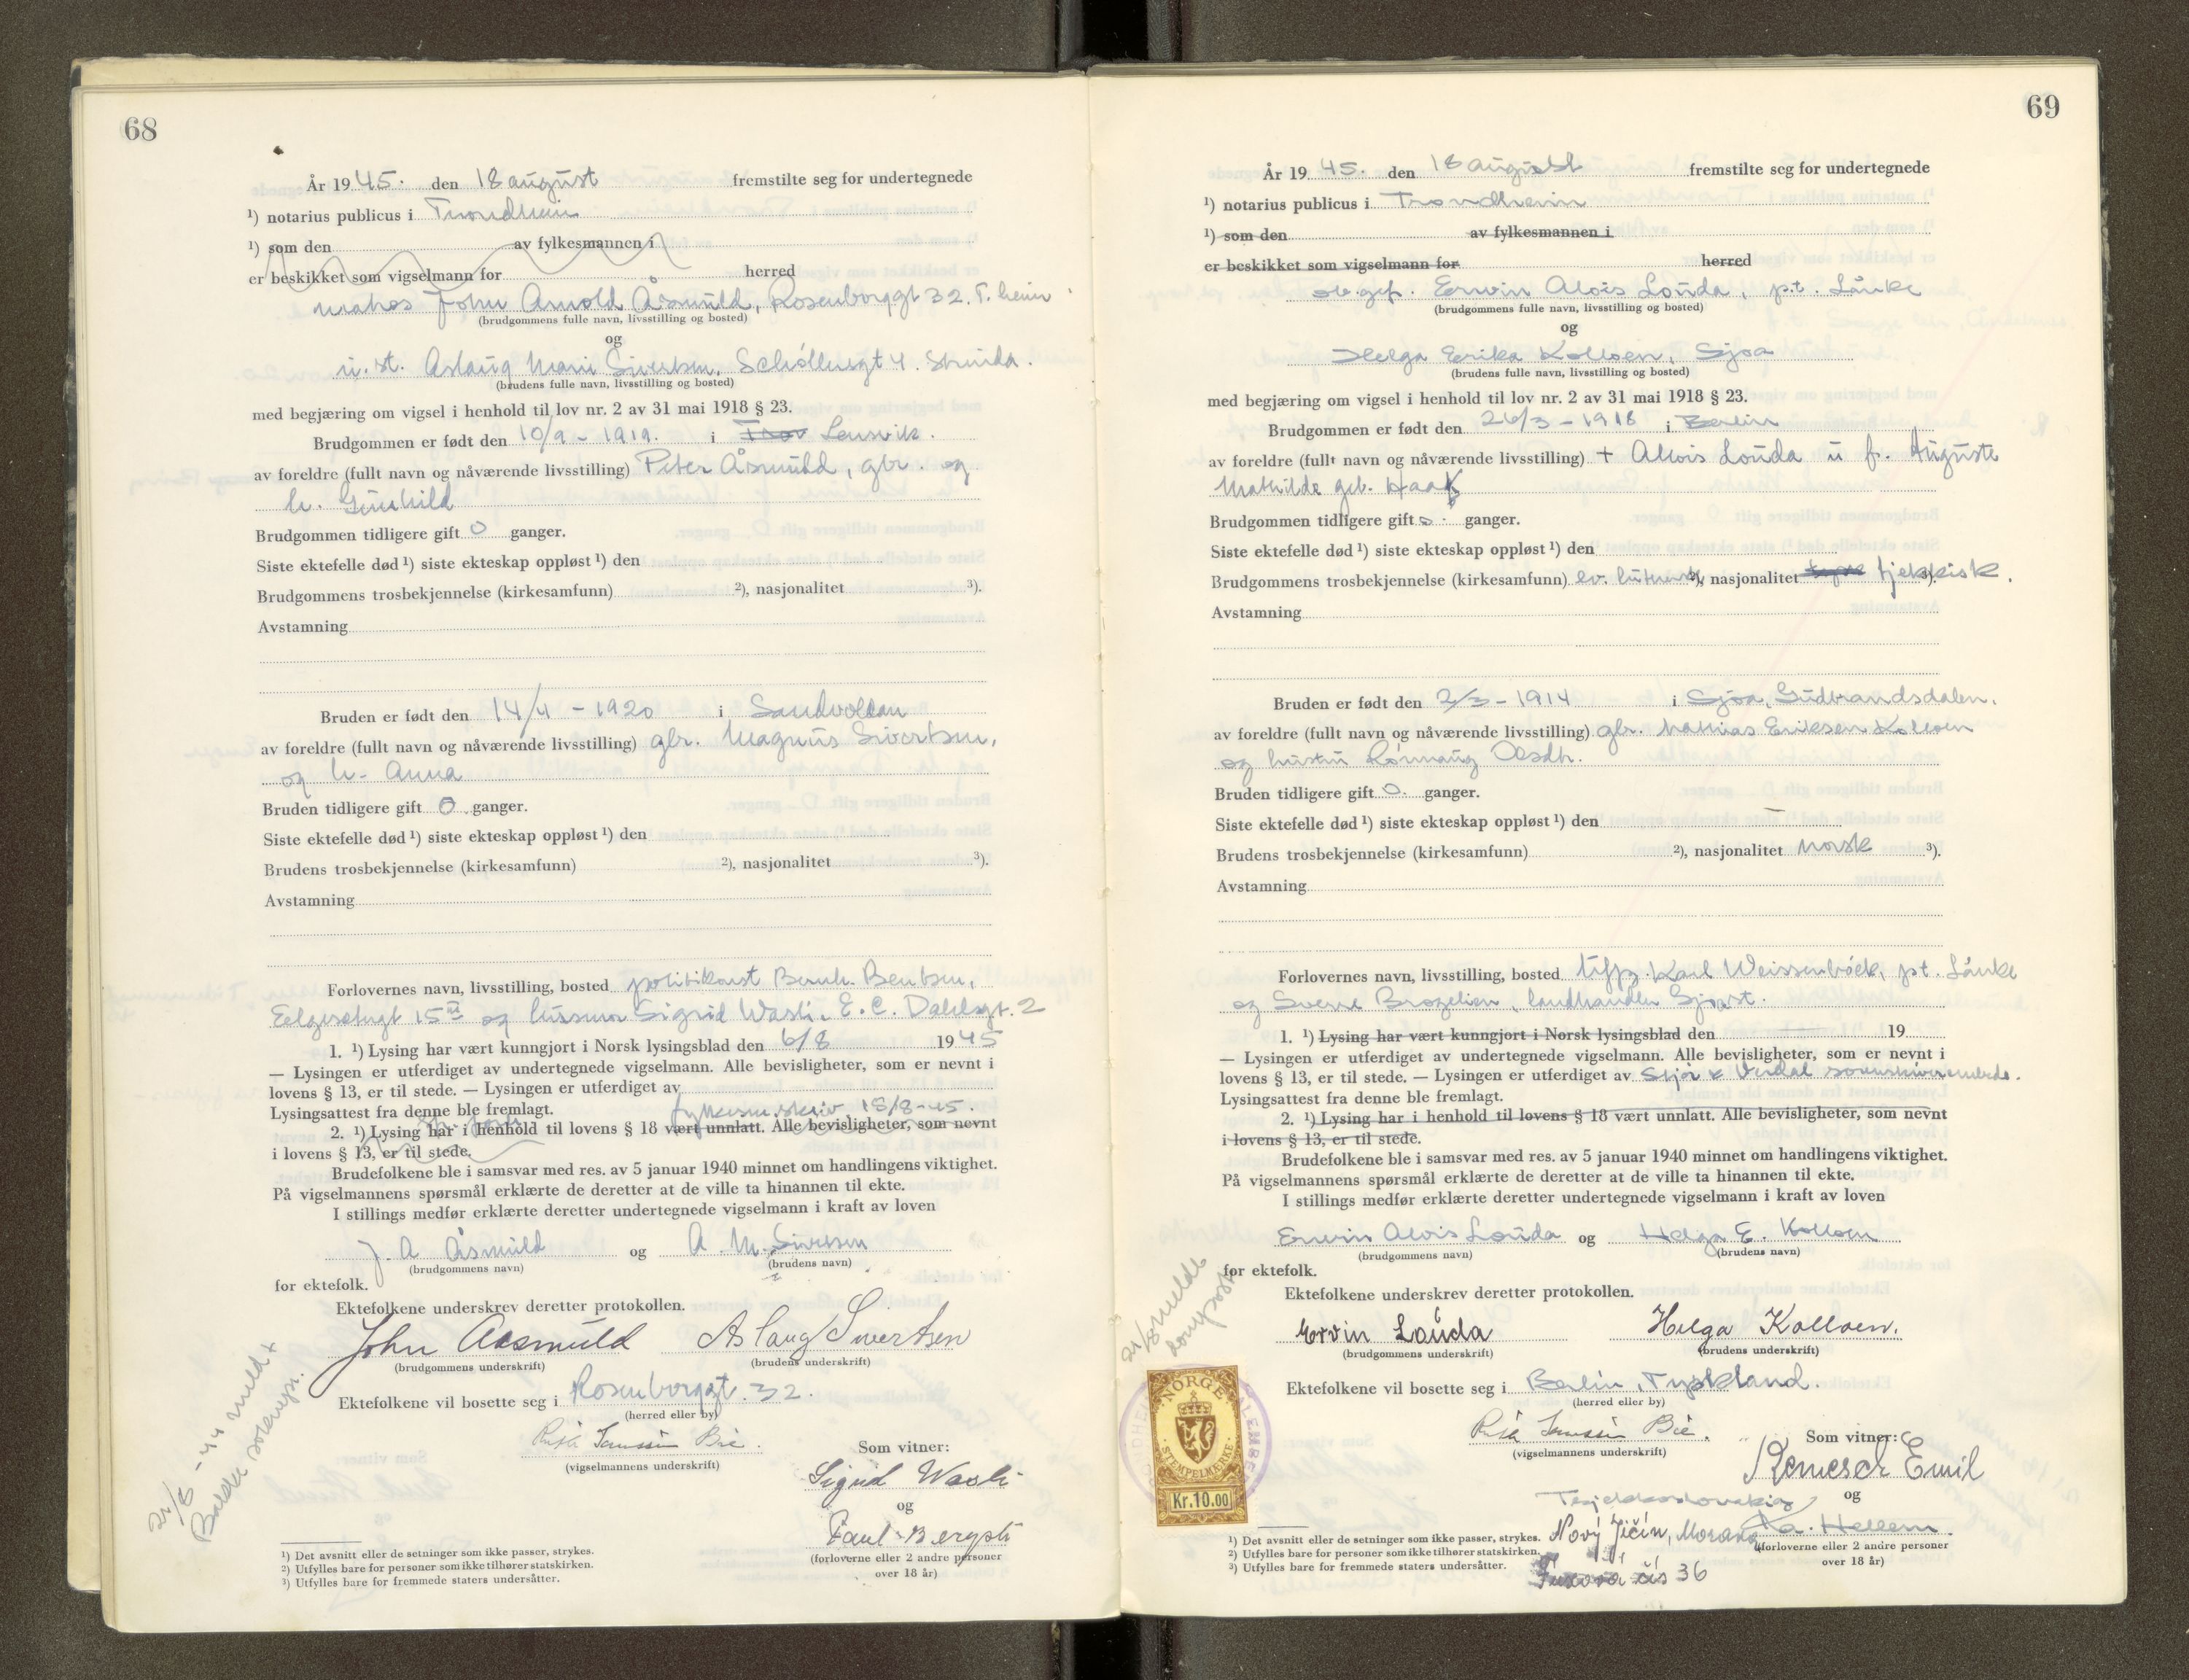 68
År 1945. den 18 august fremstilte seg for undertegnede
¹) notarius publicus i Trondheim
¹) som den av fylkesmannen i
er beskikket som vigselmann for herred
John Arnold Åsmuld, Rosenborggt 32. T.heim
(brudgommens fulle navn, livsstilling og bosted)
og
Aslaug Marie Sivertsen, 4. Strinda.
(brudens fulle navn, livsstilling og bosted)
med begjæring om vigsel i henhold til lov nr. 2 av 31 mai 1918 § 23.
Brudgommen er født den 10/9 - 1919. i Lensvik.
av foreldre (fullt navn og nåværende livsstilling) Peter Åsmuld, gbr. og
h. Gunhild
Brudgommen tidligere gift 0 ganger.
Siste ektefelle død ¹) siste ekteskap oppløst ¹) den
Brudgommens trosbekjennelse (kirkesamfunn) ²), nasjonalitet ³).
Avstamning
Bruden er født den 14/4 - 1920 i Sandvollan
av foreldre (fullt navn og nåværende livsstilling) gbr. Magnus Sivertsen,
og h. Anna
Bruden tidligere gift 0 ganger.
Siste ektefelle død ¹) siste ekteskap oppløst ¹) den
Brudens trosbekjennelse (kirkesamfunn) ²), nasjonalitet ³).
Avstamning
Forlovernes navn, livsstilling, bosted politikonst Bernh. Bentsen,
15 og husmor Sigrid Wasli, E. C. Dahlsgt. 2
1. ¹) Lysing har vært kunngjort i Norsk lysingsblad den 6/8 1945
— Lysingen er utferdiget av undertegnede vigselmann. Alle bevisligheter, som er nevnt i
lovens § 13, er til stede. — Lysingen er utferdiget av
Lysingsattest fra denne ble fremlagt. 18/8-45.
2. ¹) Lysing har i henhold til lovens § 18 vært unnlatt. Alle bevisligheter, som nevnt
i lovens § 13, er til stede.
Brudefolkene ble i samsvar med res. av 5 januar 1940 minnet om handlingens viktighet.
På vigselmannens spørsmål erklærte de deretter at de ville ta hinannen til ekte.
I stillings medfør erklærte deretter undertegnede vigselmann i kraft av loven
J. A Åsmuld og A. M. Sivertsen
(brudgommens navn) (brudens navn)
for ektefolk.
Ektefolkene underskrev deretter protokollen.
John Aasmuld Aslaug Sivertsen
(brudgommens underskrift) (brudens underskrift)
Ektefolkene vil bosette seg i Rosenborggt. 32.
(herred eller by)
(vigselmannens underskrift)
Som vitner:
Sigrid Wasli
og
(forloverne eller 2 andre personer
over 18 år)
¹) Det avsnitt eller de setninger som ikke passer, strykes.
²) Utfylles bare for personer som ikke tilhører statskirken.
³) Utfylles bare for fremmede staters undersåtter.
69
År 1945. den 18 august fremstilte seg for undertegnede
¹) notarius publicus i Trondheim
¹) som den av fylkesmannen i
er beskikket som vigselmann for herred
Erwin Alois Louda, p.t. Lånke
(brudgommens fulle navn, livsstilling og bosted)
og
Helga Erika Kolloen, Sjoa
(brudens fulle navn, livsstilling og bosted)
med begjæring om vigsel i henhold til lov nr. 2 av 31 mai 1918 § 23.
Brudgommen er født den 26/3 - 1918 i Berlin
av foreldre (fullt navn og nåværende livsstilling) + Alois Louda u f. Auguste
Mathilde geb. Haak
Brudgommen tidligere gift 0 ganger.
Siste ektefelle død ¹) siste ekteskap oppløst ¹) den
Brudgommens trosbekjennelse (kirkesamfunn) ev. luthersk ²), nasjonalitet tjekkisk ³).
Avstamning
Bruden er født den 2/3 - 1914 i Sjoa, Gudbrandsdalen.
av foreldre (fullt navn og nåværende livsstilling) gbr. Mathias Eriksen Kolloen
og hustru Rønnaug Olsdtr.
Bruden tidligere gift 0. ganger.
Siste ektefelle død ¹) siste ekteskap oppløst ¹) den
Brudens trosbekjennelse (kirkesamfunn) ²), nasjonalitet norsk ³).
Avstamning
Forlovernes navn, livsstilling, bosted Uffz. Karl Weissenböck, pt. Lånke
og Sverre landhandler Sjoa st.
1. ¹) Lysing har vært kunngjort i Norsk lysingsblad den 19
— Lysingen er utferdiget av undertegnede vigselmann. Alle bevisligheter, som er nevnt i
lovens § 13, er til stede. — Lysingen er utferdiget av Stjør & Verdal sorenskriverembede.
Lysingsattest fra denne ble fremlagt.
2. ¹) Lysing har i henhold til lovens § 18 vært unnlatt. Alle bevisligheter, som nevnt
i lovens § 13, er til stede.
Brudefolkene ble i samsvar med res. av 5 januar 1940 minnet om handlingens viktighet.
På vigselmannens spørsmål erklærte de deretter at de ville ta hinannen til ekte.
I stillings medfør erklærte deretter undertegnede vigselmann i kraft av loven
Erwin Alois Louda og Helga E. Kolloen
(brudgommens navn) (brudens navn)
for ektefolk.
Ektefolkene underskrev deretter protokollen.
Ervin Louda Helga Kolloen.
(brudgommens underskrift) (brudens underskrift)
Ektefolkene vil bosette seg i Berlin, Tyskland.
(herred eller by)
(vigselmannens underskrift)
Som vitner:
Emil
og
Nový Jičín, Morava
36
(forloverne eller 2 andre personer
over 18 år)
NORGE
STEMPELMERKE
Kr.10.00
¹) Det avsnitt eller de setninger som ikke passer, strykes.
²) Utfylles bare for personer som ikke tilhører statskirken.
³) Utfylles bare for fremmede staters undersåtter.